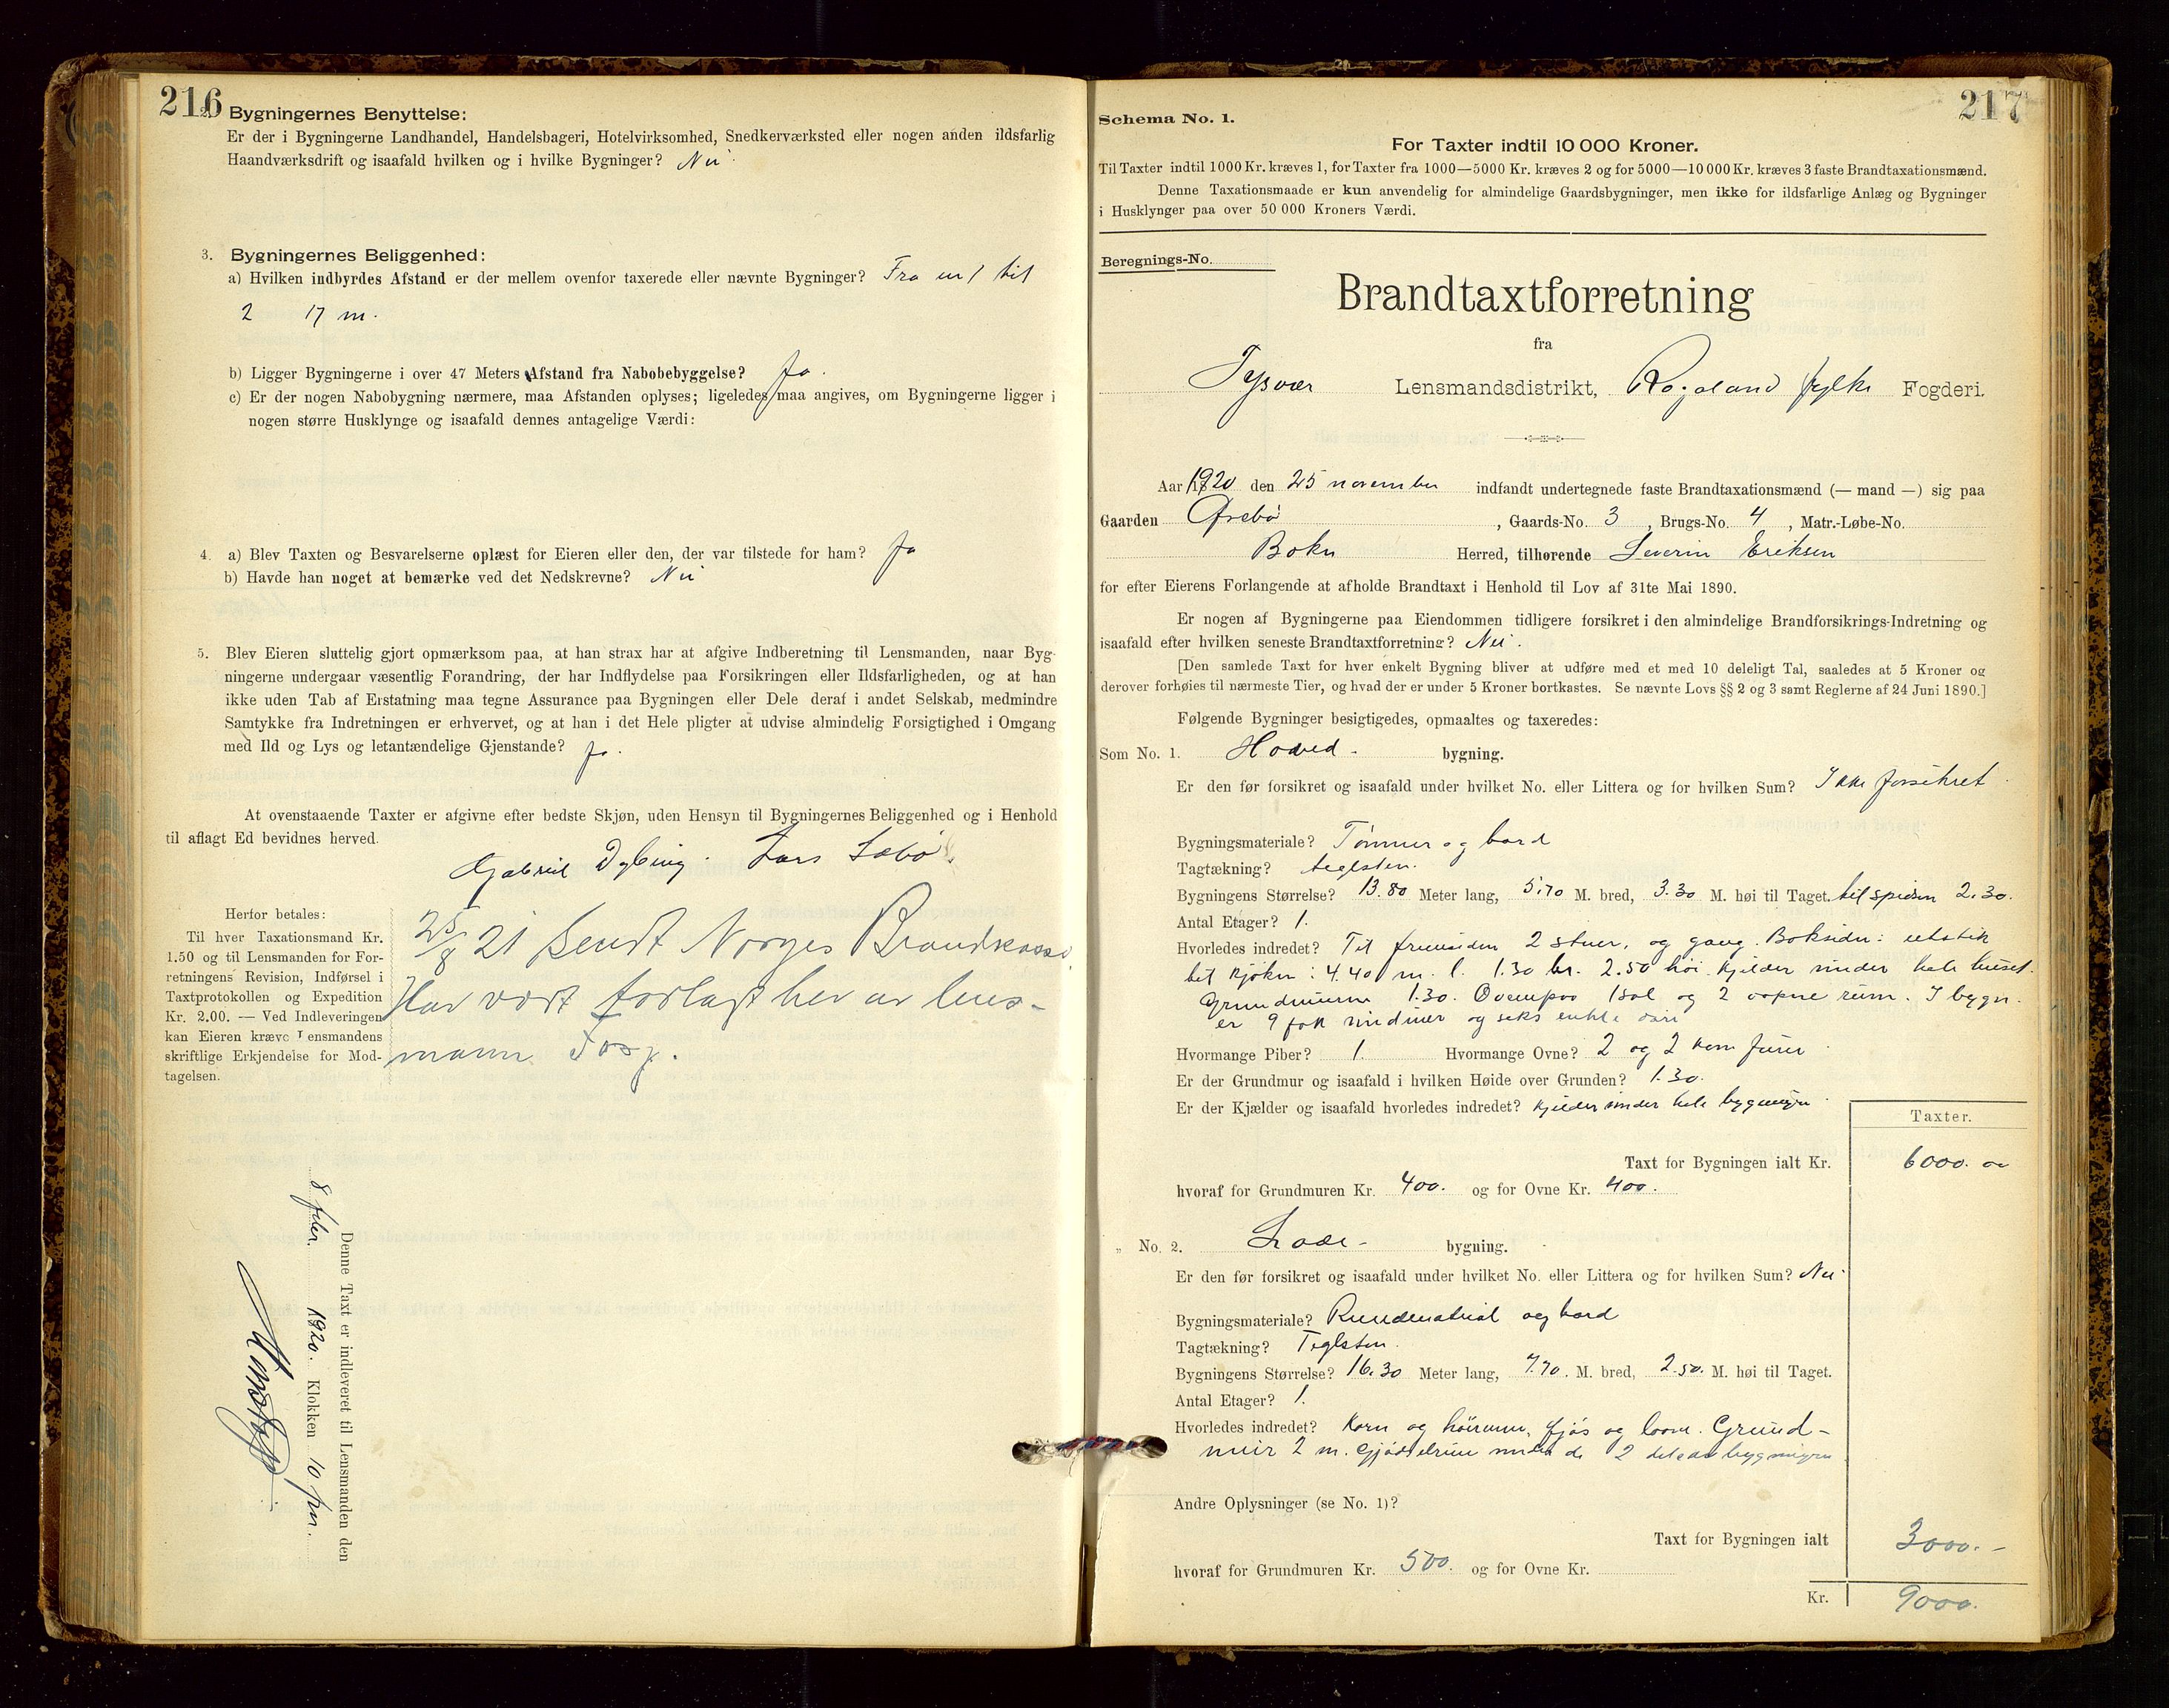 216
2. Bygningernes Benyttelse:
Er der i Bygningerne Landhandel, Handelsbageri, Hotelvirksomhed, Snedkerværksted eller nogen anden ildsfarlig
Haandværksdrift og isaafald hvilken og i hvilke Bygninger? Nei
3. Bygningernes Beliggenhed:
a) Hvilken indbyrdes Afstand er der mellem ovenfor taxerede eller nævnte Bygninger? Fra nr 1 til
2 17 m.
b) Ligger Bygningerne i over 47 Meters Afstand fra Nabobebyggelse? Ja.
c) Er der nogen Nabobygning nærmere, maa Afstanden oplyses; ligeledes maa angives, om Bygningerne ligger i
nogen større Husklynge og isaafald dennes antagelige Værdi:
4. a) Blev Taxten og Besvarelserne oplæst for Eieren eller den, der var tilstede for ham? Ja
b) Havde han noget at bemærke ved det Nedskrevne? Nei
5. Blev Eieren sluttelig gjort opmærksom paa, at han strax har at afgive Indberetning til Lensmanden, naar Byg-
ningerne undergaar væsentlig Forandring, der har Indflydelse paa Forsikringen eller Ildsfarligheden, og at han
ikke uden Tab af Erstatning maa tegne Assurance paa Bygningen eller Dele deraf i andet Selskab, medmindre
Samtykke fra Indretningen er erhvervet, og at han i det Hele pligter at udvise almindelig Forsigtighed i Omgang
med Ild og Lys og letantændelige Gjenstande? Ja.
At ovenstaaende Taxter er afgivne efter bedste Skjøn, uden Hensyn til Bygningernes Beliggenhed og i Henhold
til aflagt Ed bevidnes herved.
Gabriel Dybing. Lars Sebø.
Herfor betales:
Til hver Taxationsmand Kr.
1.50 og til Lensmanden for For-
retningens Revision, Indførsel i
Taxtprotokollen og Expedition
Kr. 2.00. — Ved Indleveringen
kan Eieren kræve Lensmandens
skriftlige Erkjendelse for Mod-
tagelsen.
25/8 21 Sendt Norges Brandkasse
Har vært forlagt her av lens-
mann
Denne Taxt er indleveret til Lensmanden den
8 febr. 1920. Klokken 10 fm.
217
Schema No. 1.
For Taxter indtil 10 000 Kroner.
Til Taxter indtil 1000 Kr. kræves 1, for Taxter fra 1000—5000 Kr. kræves 2 og for 5000—10 000 Kr. kræves 3 faste Brandtaxationsmænd.
Denne Taxationsmaade er kun anvendelig for almindelige Gaardsbygninger, men ikke for ildsfarlige Anlæg og Bygninger
i Husklynger paa over 50 000 Kroners Værdi.
Beregnings-No.
Brandtaxtforretning
fra
Tysvær Lensmandsdistrikt, Rogaland fylke Fogderi.
Aar 1920 den 25 november indfandt undertegnede faste Brandtaxationsmænd (— mand —) sig paa
Gaarden Øvebø, Gaards-No. 3, Brugs-No. 4, Matr.-Løbe-No.
Bokn Herred, tilhørende Severin Eriksen
for efter Eierens Forlangende at afholde Brandtaxt i Henhold til Lov af 31te Mai 1890.
Er nogen af Bygningerne paa Eiendommen tidligere forsikret i den almindelige Brandforsikrings-Indretning og
isaafald efter hvilken seneste Brandtaxtforretning? Nei.
[Den samlede Taxt for hver enkelt Bygning bliver at udføre med et med 10 deleligt Tal, saaledes at 5 Kroner og
derover forhøies til nærmeste Tier, og hvad der er under 5 Kroner bortkastes. Se nævnte Lovs §§ 2 og 3 samt Reglerne af 24 Juni 1890.]
Følgende Bygninger besigtigedes, opmaaltes og taxeredes:
Som No. 1. Hoved- bygning.
Er den før forsikret og isaafald under hvilket No. eller Littera og for hvilken Sum? Ikke forsikret
Bygningsmateriale? Tømmer og bord
Tagtækning? teglsten.
Bygningens Størrelse? 13.80 Meter lang, 5.70 M. bred, 3.30 M. høi til Taget. til spidsen 2.30.
Antal Etager? 1.
Hvorledes indredet? Til fremsiden 2 stuer, og gang. Baksiden: utstik
til kjøkn: 4.40 m. l. 1.30 br. 2.50 høi. Kjelder under hele huset.
Grundmuren 1.30. Ovenpaa 1 sal og 2 aapne rum. I bygn.
er 9 fak vinduer og seks enkle døre
Hvormange Piber? 1. Hvormange Ovne? 2 og 2 komfurer
Er der Grundmur og isaafald i hvilken Høide over Grunden? 1.30.
Er der Kjælder og isaafald hvorledes indredet? Kjelder under hele bygningen.
Taxter.
Taxt for Bygningen ialt Kr. 6000. oo
hvoraf for Grundmuren Kr. 400. og for Ovne Kr. 400.
„ No. 2. Løde- bygning.
Er den før forsikret og isaafald under hvilket No. eller Littera og for hvilken Sum? Nei
Bygningsmateriale? Rundmatrial og bord
Tagtækning? Teglsten.
Bygningens Størrelse? 16.30 Meter lang, 7.70. M. bred, 2.50. M. høi til Taget.
Antal Etager? 1.
Hvorledes indredet? Korn og hørum, fjøs og loove. Grund-
mur 2 m. Gjødselrum under de 2 dele av bygningen
Andre Oplysninger (se No. 1)?
Taxt for Bygningen ialt 3000.-
hvoraf for Grundmuren Kr. 500. og for Ovne Kr.
Kr. 9000.